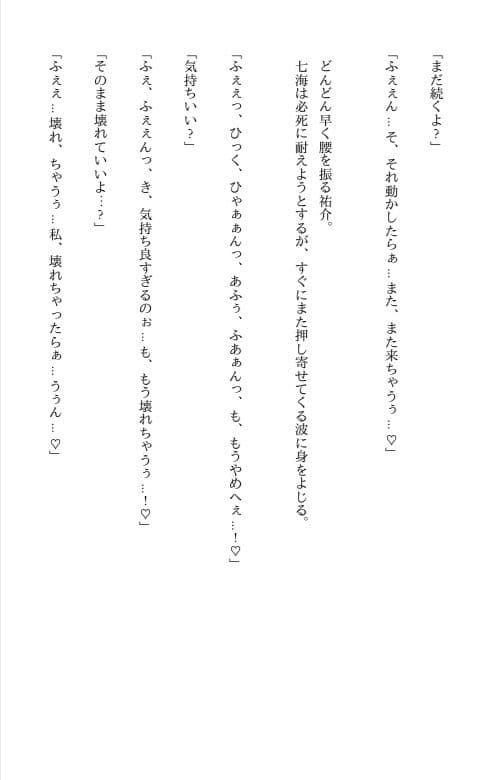 「まだ続くよ？」
「ふぇぇん…そ、それ動かしたらぁ…また、また来ちゃうぅ…♡」
どんどん早く腰を振る祐介。
七海は必死に耐えようとするが、すぐにまた押し寄せてくる波に身をよじる。
「ふぇぇっ、ひっく、ひゃぁぁんっ、あふぅ、ふあぁんっ、も、もうやめへぇ…！♡」
「気持ちいい？」
「ふぇ、ふぇぇんっ、き、気持ち良すぎるのぉ…も、もう壊れちゃうぅ…！♡」
「そのまま壊れていいよ…？」
「ふぇぇ…壊れ、ちゃうぅ…私、壊れちゃったらぁ…うぅん…♡」